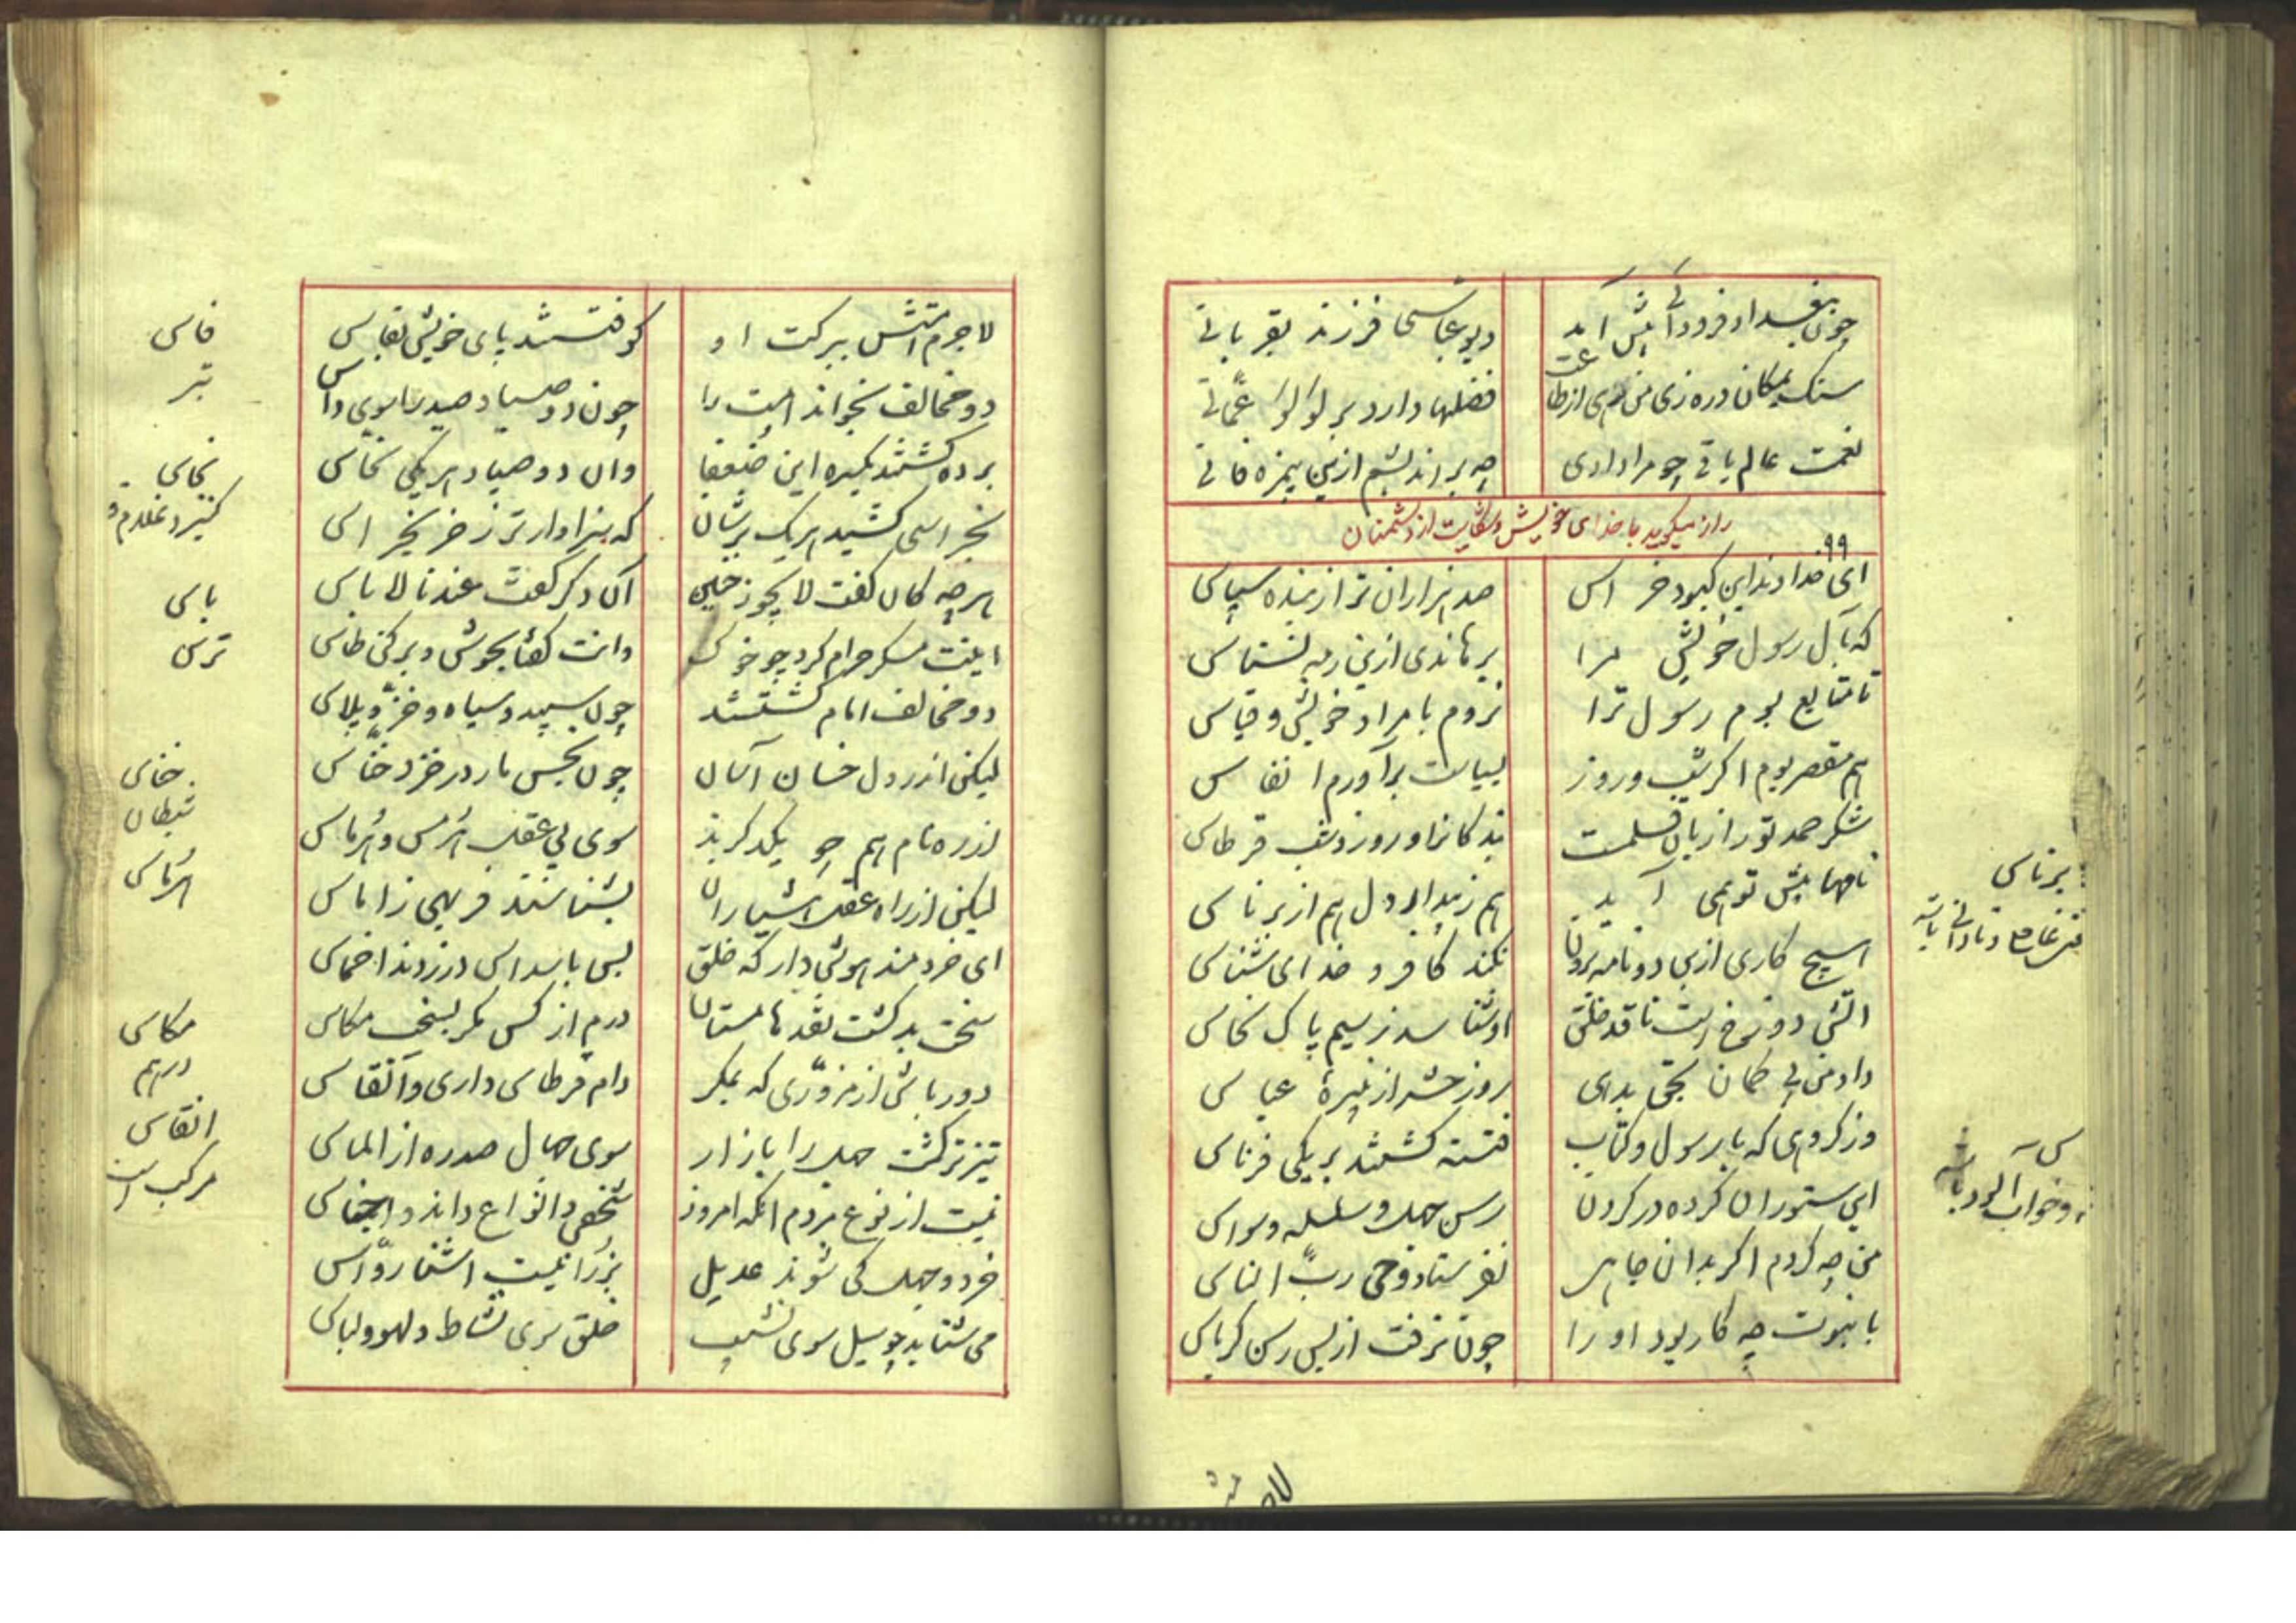 چون ببغداد فرود آیی پیش آید
دیو عباسی فرزند بقربانی
سنک یمکان دره زی من رهی از طاعت
فضلها دارد بر لولو عمّانی
نعمت عالم باقی چو مرا دادی
چه براندیشم ازین بیمزه فانی
راز میکوید با خدای خویش و شکایت از دشمنان
۹۹
ای خداوند این کبود خراس
صد هزاران ترا ز بنده سپاس
که بآل رسول خویش مرا
برهاندی ازین رمه نشناس
تا متابع بوم رسول ترا
نروم با مراد خویش و قیاس
هم مقصر بوم اکر شب و روز
بسپاست برآورم انفاس
شکر حمد تو را زبان قلمست
بندکانرا و روز و شب قرطاس
نامها پیش تو همی آید
هم ز بیدار دل هم از برناس
هیچ کاری ازین دو نامه برون
نکند کافر و خدای شناس
آتش دوزخ است ناقد خلق
او شناسد ز سیم پاک نخاس
داد من بی کمان بحق بدهی
روز حشر از نبیرهٔ عباس
وز کروهی که با رسول و کتاب
فتنه کشتند بر یکی فرناس
این ستوران کرده در کردن
رسن جهل و سلسله وسواس
من چه کردم اکر بدان جاهل
نفرستاد وحی ربّ الناس
با نبوت چه کار بود او را
چون نرفت از پس رسن کرباس
برناس
س
و خواب آلود باشد
لاجرم امتش ببرکت او
کوفتستند پای خویش بفاس
دو مخالف بخواند امت را
چون دو صیاد صید را سوی داس
برده کشتند یکسره این ضعفا
وان دو صیاد هر یکی نخاس
بخراسی کشید هر یک برشان
که سزاوارتر ز خر بخراس
هرچه کان کفت لا یجوز چنین
آن دکر کفت عندنا لا باس
اینت مسکر حرام کرد چو خوک
وانت کفتا بجوش و پر کن طاس
دو مخالف امام کشتستند
چون سپید و سیاه و خزّ و پلاس
لیکن اندر دل خسان آسان
چون بخس مار درخزد خنّاس
اندر ره نام هم چو یکدکرند
سوی بی عقل هرمس و هرماس
لیکن از راه عقل هشیاران
بشناسند فربهی ز اماس
ای خردمند هوش دار که خلق
بس باسداس درزدند اخماس
سخت بد کشت نقدها مستان
درم از کس مکر بسخت مکاس
دور باش از مزوّری که بمکر
دام قرطاس داری و انقاس
تیزتر کشت جهل را بازار
سوی جهال صدره از الماس
نیست از نوع مردم آنکه امروز
شخص و انواع داند و اجناس
خرد و جهل کی شوند عدیل
برّ را نیست آشنا روّاس
می شتابد چو سیل سوی نشیب
خلق سوی نشاط و لهو و لباس
فاس
تبر
نخاس
باس
ترس
خناس
شیطان
هرماس
مکاس
درهم
انقاس
مرکب است